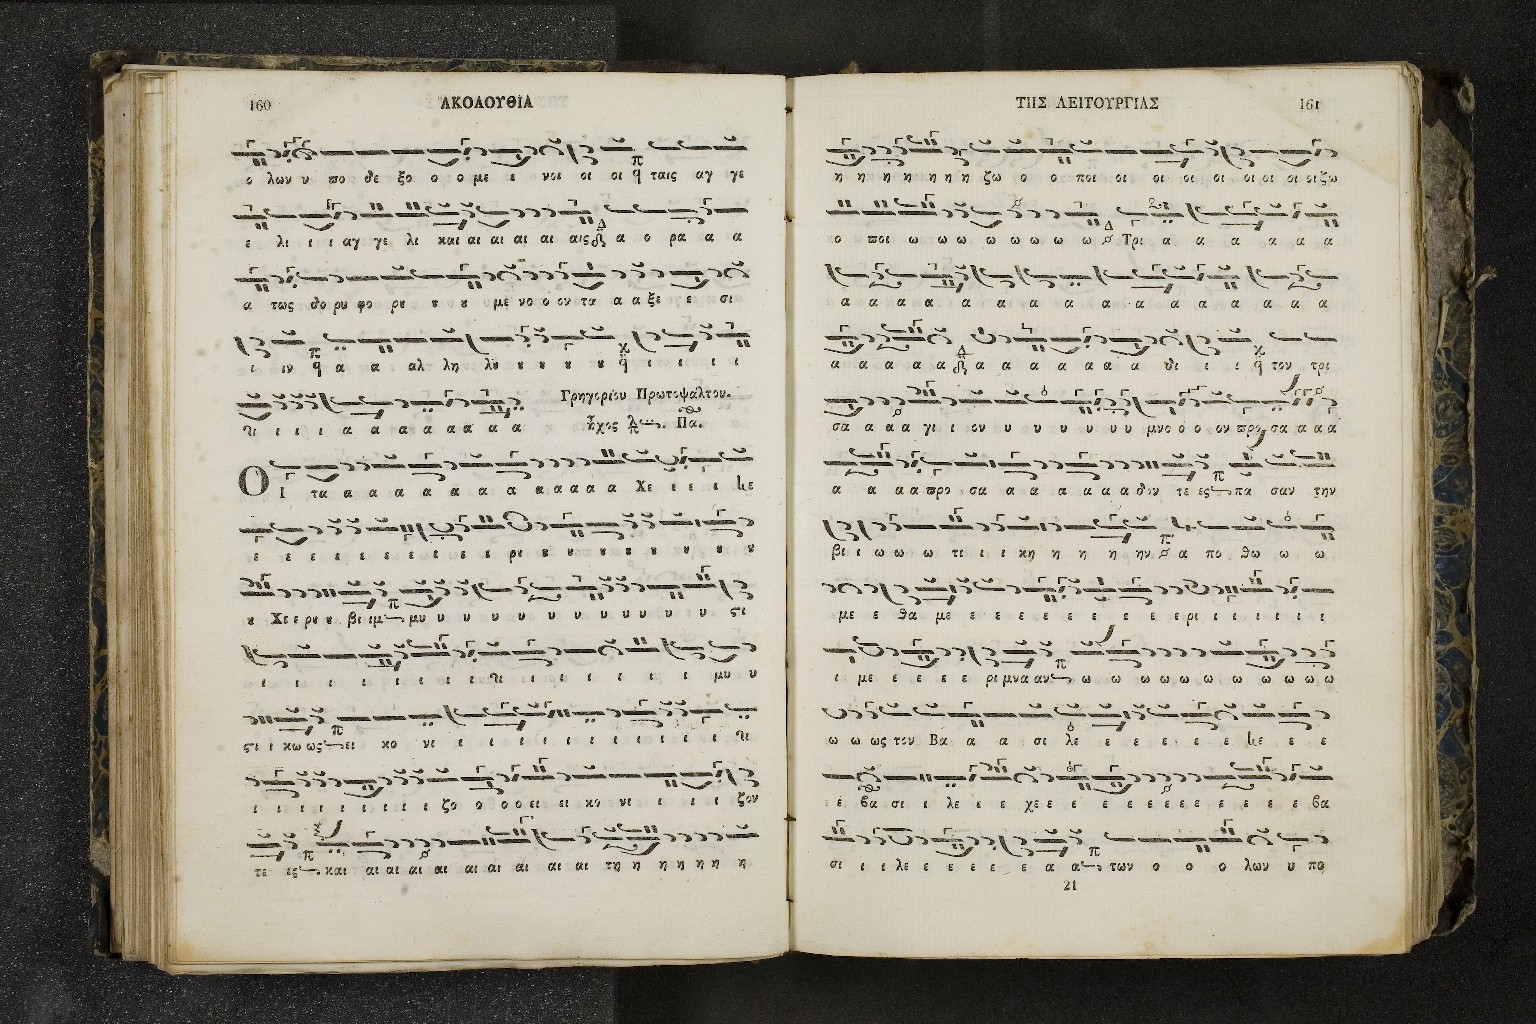 160
ΑΚΟΛΟΥΘΙΑ
ο λων υ πο δε ξο ο ο με ι νοι οι οι ταις αγ γε
ε λι ι ι αγ γε λι και αι αι αι αι αι αις α ο ρα α α
α τως δο ρυ φο ρυ υ υ υ με νο ο ον τα α α ξε ε σι
ι ιν α α αλ λη λυ υ υ υ υ ι ι ι ι
Γρηγορίου Πρωτοψάλτου.
ι ι ι α α α α α α α α
ἦχος Πα.
Οἱ τα α α α α α α α α α α α Χε ι ε ι
ε ε ε ε ε ε ε ε ε ι ρυ υ υ υ υ υ υ υ υ
υ Χε ε ρυ υ βι ιμ μυ υ υ υ υ υ υ υ υ υ υ υ στι
ι ι ι ι ι ι ι ι ι ι ι ι ι μυ υ
στι ι κω ως ει κο νι ι ι ι ι ι ι ι ι ι ι ι
ι ι ι ι ι ι ι ι ζο ο ο ο ει ει κο νι ι ι ι ι ζον
τε ες και αι αι αι αι αι αι αι αι αι τη η η η η η η
ΤΗΣ ΛΕΙΤΟΥΡΓΙΑΣ
161
η η η η η η η ζω ο ο ποι οι οι οι οι οι οι οι οι οι ζω
ο ποι ω ω ω ω ω ω ω ω Τρι α α α α α α
α α α α α α α α α α α α α α α
α α α α α α α α α α α α α δι ι ι τον τρι
σα α α α γι ι ον υ υ υ υ υ υ υ μνο ο ο ον προ σα α α α
α α α α προ σα α α α α α α δον τε ες πα σαν την
βι ι ω ω ω τι ι ι κη η η η ην α πο θω ω ω
με ε θα με ε ε ε ε ε ε ε ε ε ε ρι ι ι ι ι ι
ι με ε ε ε ε ρι μνα αν ω ω ω ω ω ω ω ω ω ω ω
ω ω ως τον Βα α α σι λε ε ε ε ε ε ε ε ε
ε βα σι ι λε ε ε χε ε ε ε ε ε ε ε ε ε ε ε ε βα
σι ι ι λε ε ε ε ε ε α α των ο ο ο λων υ πο
21